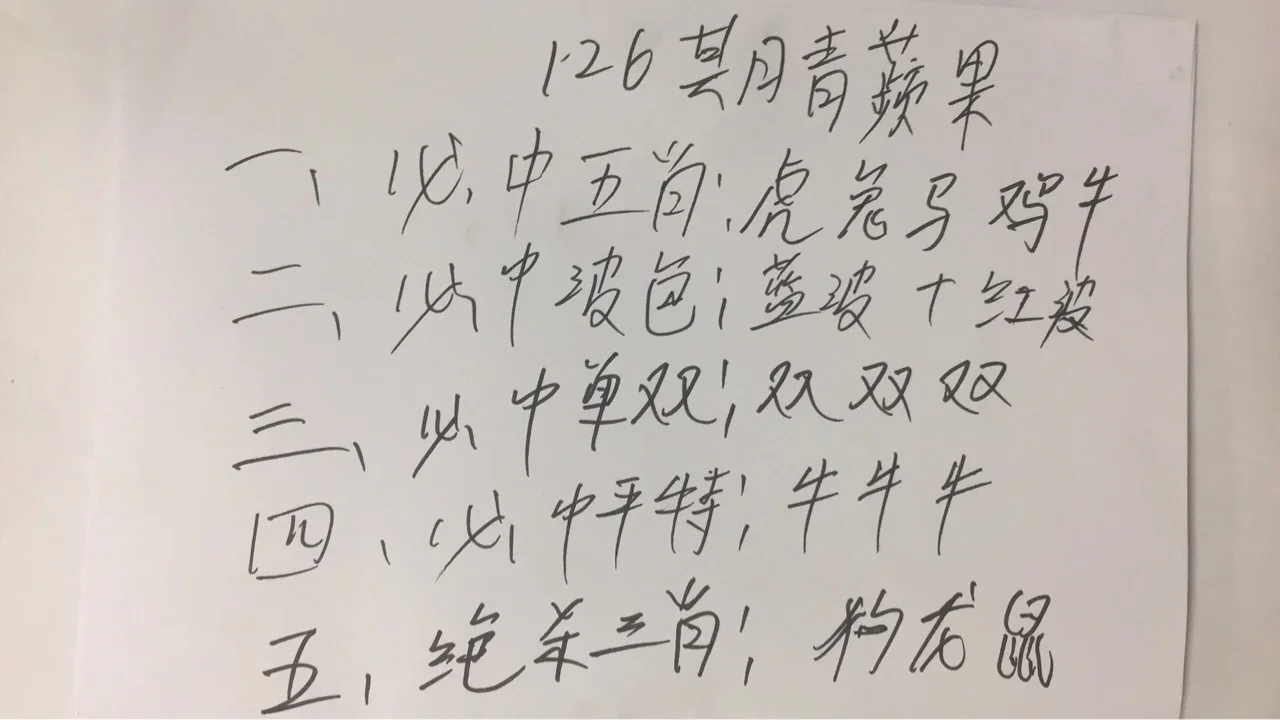 126期青蘋果
一、必中五肖;虎兔马鸡牛
二、必中波色;蓝波+红波
三、必中单双;双双双
四、必中平特;牛牛牛
五、绝杀三肖;狗龙鼠